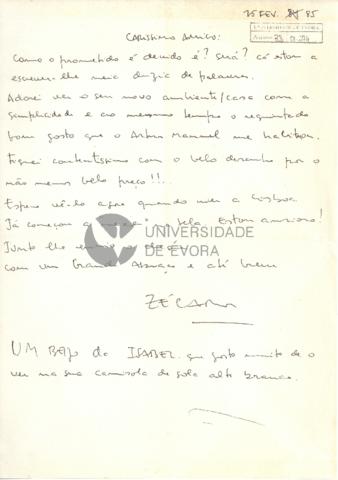 25 FEV. 85
CARISSIMO AMIGO:
Como o prometido é devido é? Será? cá estou a
escrever-lhe meia duzia de palavras.
Adorei ver o seu novo ambiente/casa com a
simplicidade e ao mesmo tempo o requintado
bom gosto que o Artur Manuel me habituou.
Fiquei contentissimo com o belo desenho por o
não menos belo preço!!!..
Espero vê-lo agora quando vier a Lisboa
Já começou a tela Estou ansioso!
Junto lhe
com um Grande Abraço e até breve
UNIVERSIDADE
DE ÉVORA
UM BEIJO da ISABEL que gosta muito de o
ver na sua camisola de gola alta branca.